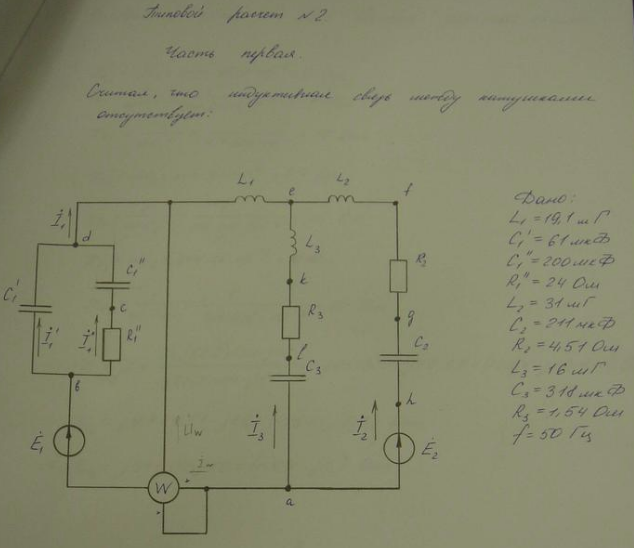 Типовой расчет №2
Часть первая.
Считая, что индуктивная связь между катушками
отсутствует:
L₁
e
L₂
f
İ₁
d
L₃
C₁'
C₁''
k
R₂
c
R₃
g
İ₁'
İ₁''
R₁''
l
C₃
C₂
b
h
U̇w
İ₃
İ₂
Ė₁
Ė₂
W
a
Дано:
L₁ = 19,1 мГ
C₁' = 61 мкФ
C₁'' = 200 мкФ
R₁'' = 24 Ом
L₂ = 31 мГ
C₂ = 211 мкФ
R₂ = 4,51 Ом
L₃ = 16 мГ
C₃ = 318 мкФ
R₃ = 1,54 Ом
f = 50 Гц